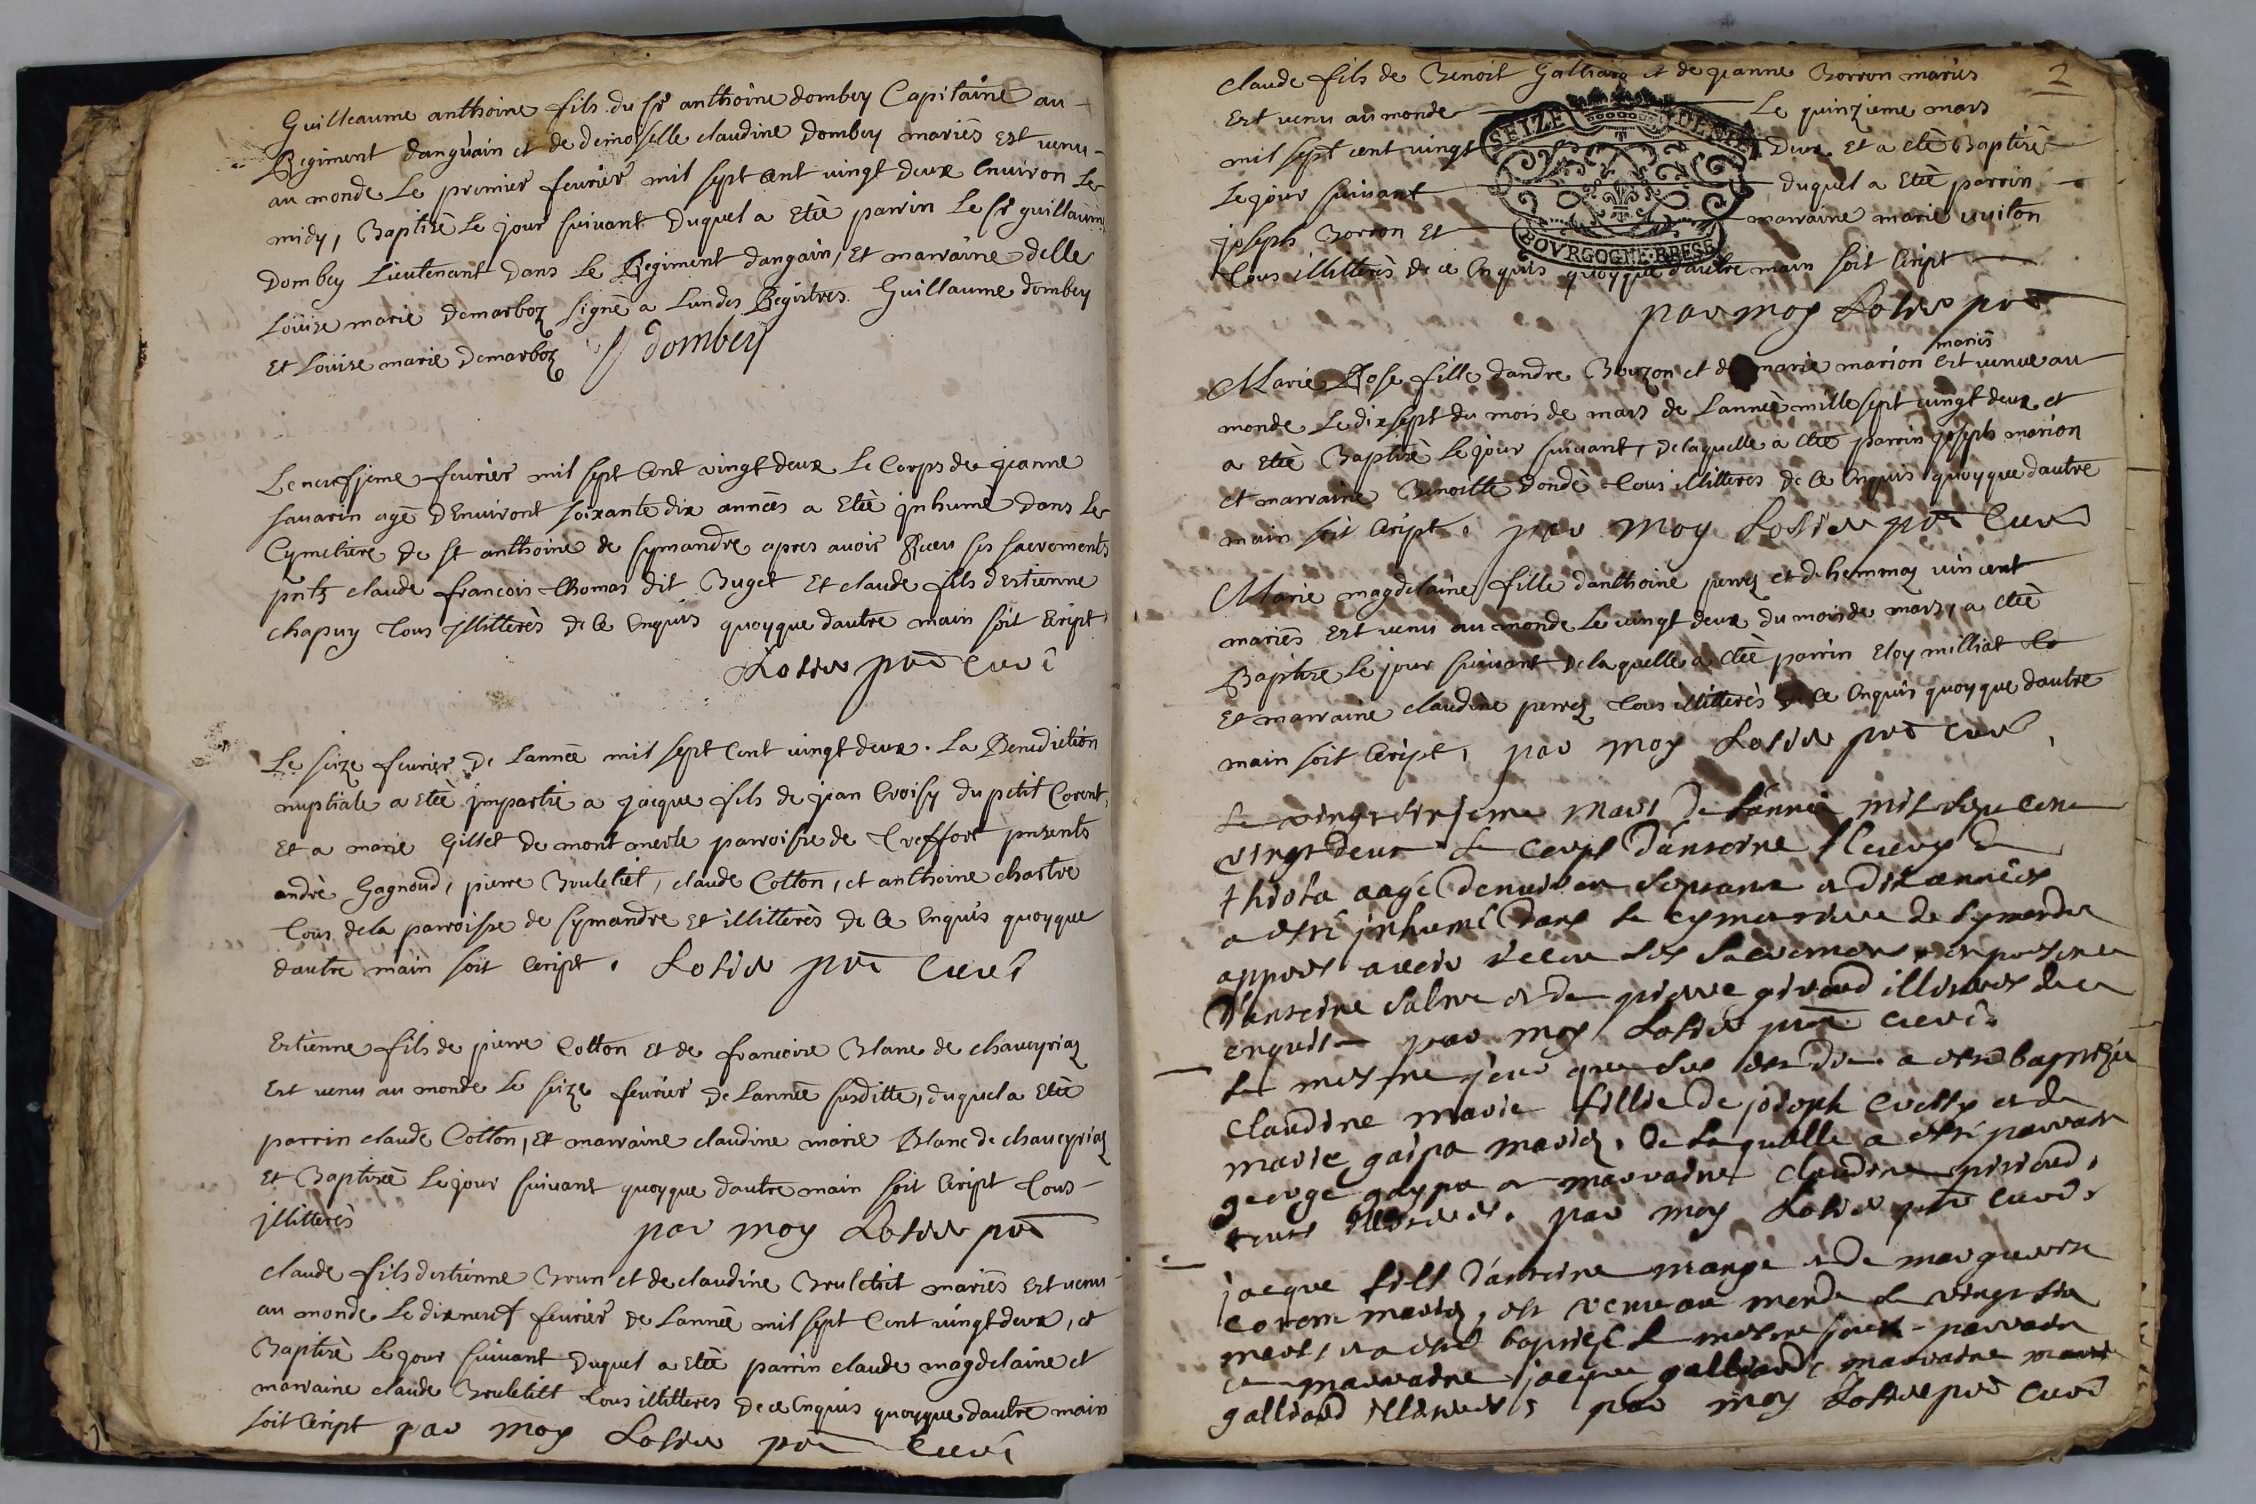 Guilleaume anthoine fils du sr anthoine dombey Capitaine au
Regiment danguain et de demoiselle claudine dombey mariés est venu
au monde Le premier fevrier mil sept cent vingt deux Environ Le
midy, Baptizé Le jour suivant Duquel a Eteé parrin Le sr guillaume
Dombey Lieutenant dans Le Regiment dangain, Et marraine delle
Loüise marie demarboz signé a Lundes Registres Guillaume dombey
Et Loüise marie Demarboz dombey
Le neufjeme fevrier mil sept Cent vingt deux Le Corps de jeanne
savarin agé dEnviront soixante dix années a Eteé jnhumé dans Le
Cymetiere de st anthoine de symandre apres avoir Receu ses sacrements
pnts claude francois Thomas dit Buget Et claude fils dEstienne
chapuy tous jllitterès de Ce Enquis quoyque dautre main soit Ecript
ptre Curé
Le seize fevrier De Lannée mil sept Cent vingt deux. La Benediction
nuptiale a Eteé jmpartie a jacque fils de jean Croisy du petit Corent,
Et a marie Gillet de mont merle parroisse de Treffort presents
andrè Gagnoud, pierre Brulctiet, claude Cotton, et anthoine chastre
Tous de la parroisse de symandre Et illitterès de Ce Enquis quoyque
dautre main soit Ecript. ptre Curé
Estienne fils de pierre Cotton Et de francoise Blanc de chaveyriaz
Est venu au monde Le seize fevrier de Lannée susditte, duquel a Eteé
parrin claude Cotton, Et marraine claudine marie Blanc de chaveyriaz
Et Baptizeé Le jour suivant quoyque dautre main soit Ecript Tous
jllitterès par moy ptre
claude fils destienne Brun et de claudine Brulctiet mariés Est venu
au monde Le dixneuf fevrier de Lannée mil sept Cent vingt deux, et
Baptizé Le jour suivant Duquel a Eteé parrin claude magdelaine et
marraine claude Brulctiet Tous illitteres de ce Enquis quoyque dautre main
soit Ecript par moy ptre Curé
2
claude fils de Benoit Galliard et de jeanne Borron mariés
Est venu au monde Le quinzieme mars
mil sept cent vingt Deux Et a eté Baptizé
Le jour suivant duquel a Eteé parrin
joseph Borron Et marraine marie
Tous illitterès de ce Enquis quoyque dautre main soit Ecript
SEIZE DEN
BOVRGOGNE·BRESSE
par moy ptre
mariés
Marie Rose fille dandre Bouzon et de marie marion Est venue au
monde Le dixsept du mois de mars de Lanneé mille sept vingt deux et
a Eteé Baptizé Le jour suivant, de laquelle a Eteé parrin joseph marion
et marraine Benoitte Dondè Tous illitteres de Ce Enquis quoyque dautre
main soit Ecript. par moy ptre Curé
Marie magdelaine fille danthoine perrez et de hemmoz vincent
mariés Est venu au monde Le vingt deux du mois de mars, a Eteé
Baptize Le jour suivant de laquelle a Eteé parrin Eloy milliat
Et marraine claudine perrez Tous illitterès de Ce Enquis quoyque dautre
main soit Ecript, par moy ptre Curé
Le vingt sixjeme mars de lannee mil sept cent
vingt deux le corps dantoine fleury
aagé denviron septante et dix années
a esté jnhumé dans le cymetiere de symandre
appres avoir receu ses sacremens en presence
dantoine sabne et de pierre giroud illiteres de ce
enquis par moy ptre curé
Le mesme jour que sus est dit a esté baptizée
claudine marie fillie de joseph croissy et de
marie gaspa mariez, de laquelle a esté parrain
george gaypa et marraine claudine pivioud,
tous illiteres. par moy ptre curé
jacque fils dantoine mange et de marguerite
corom mariez, est venu au monde le vingt six
mars, et a esté baptizé le mesme jour parrain
et marraine jacque galliard marraine marie
galliard illiteres, par moy ptre curé